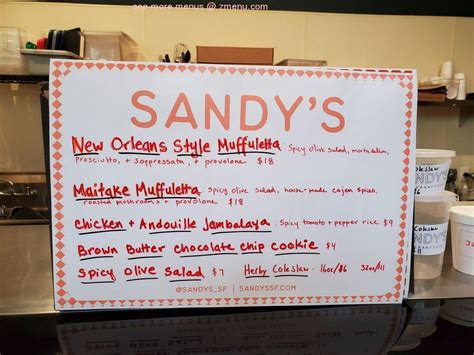 see more menus @ zmenu.com
SANDY'S
New Orleans Style Muffuletta: Spicy olive salad, mortadella,
Prosciutto, + soppressata, + provolone $18
Maitake Muffuletta: Spicy olive salad, house-made cajun spices,
roasted mushrooms + provolone $18
chicken + Andouille Jambalaya: Spicy tomato + pepper rice $9
Brown Butter chocolate chip cookie $4
Spicy olive Salad $7 Herby Coleslaw - 16oz/$6 32oz/11
@SANDYS_SF | SANDYSSF.COM
Coleslaw
SANDY'S
Coleslaw